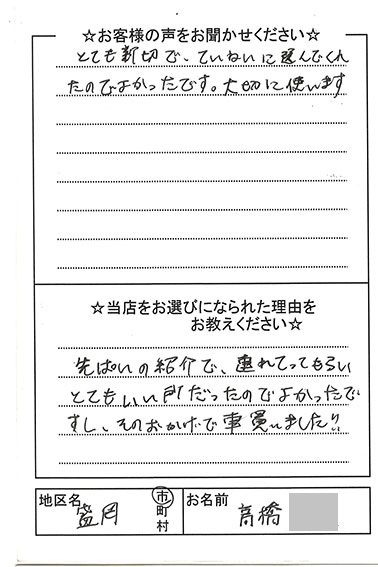 ☆お客様の声をお聞かせください☆
とても親切で、ていねいに選んでくれ
たのでよかったです。大切に使います
☆当店をお選びになられた理由を
お教えください☆
先ぱいの紹介で、連れてってもらい
とてもいい所だったのでよかったで
すし、そのおかげで車買いました!!
地区名 盛岡 市 町 村 お名前 高橋